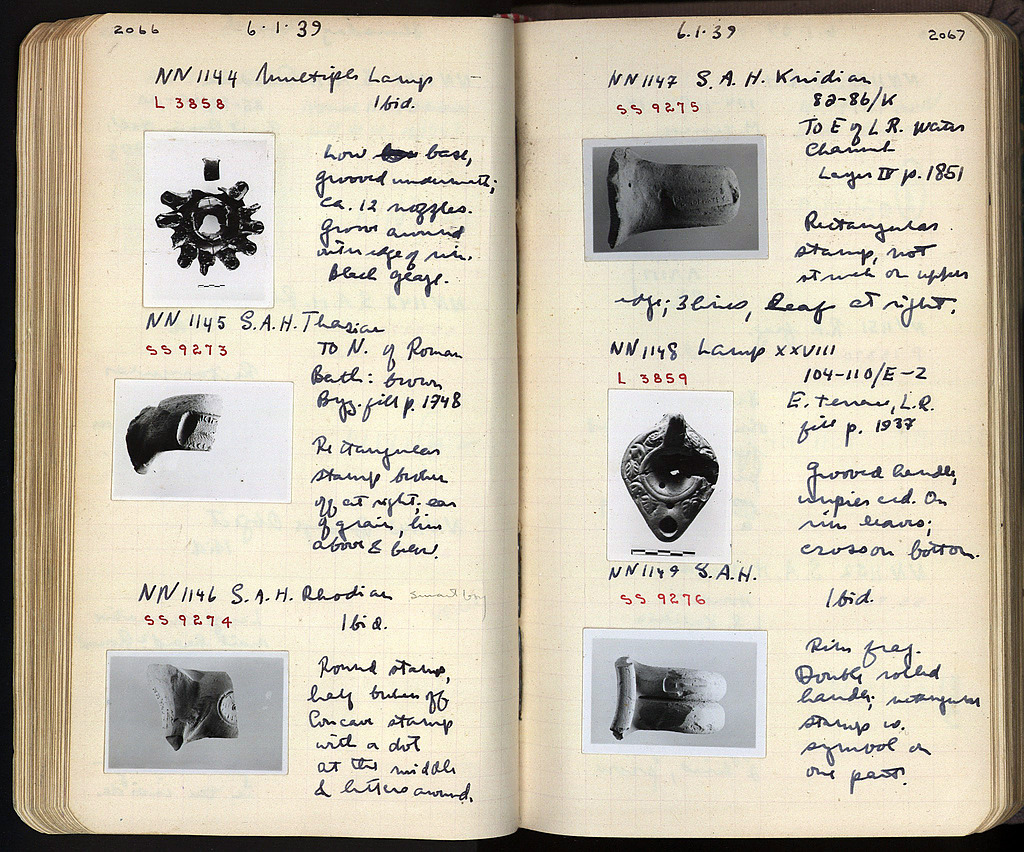 2066
6·1·39
NN 1144 Multiple Lamp
L 3858 Ibid.
Low base,
grooved underneath;
ca. 12 nozzles.
Groove around
outer edge of rim.
Black glaze.
NN 1145 S.A.H. Thasian
SS 9273
To N. of Roman
Bath: brown
Byz. fill p. 1748
Rectangular
stamp broken
off at right, ear
of grain, line
above & below.
NN 1146 S.A.H. Rhodian
SS 9274 Ibid.
Round stamp,
half broken off
Concave stamp
with a dot
at the middle
& letters around.
6·1·39
2067
NN 1147 S.A.H. Knidian
SS 9275
82-86/K
To E of L.R. water
Channel
Layer IV p. 1851
Rectangular
stamp, not
struck on upper
edge; 3 lines, Leaf at right.
NN 1148 Lamp XXVIII
L 3859
104-110/E-2
E. terrace, L.R.
fill p. 1937
Grooved handle,
unpierced. On
rim leaves;
cross on bottom.
NN 1149 S.A.H.
SS 9276 Ibid.
Rim frag.
Double rolled
handle; rectangular
stamp w.
symbol on
one part.